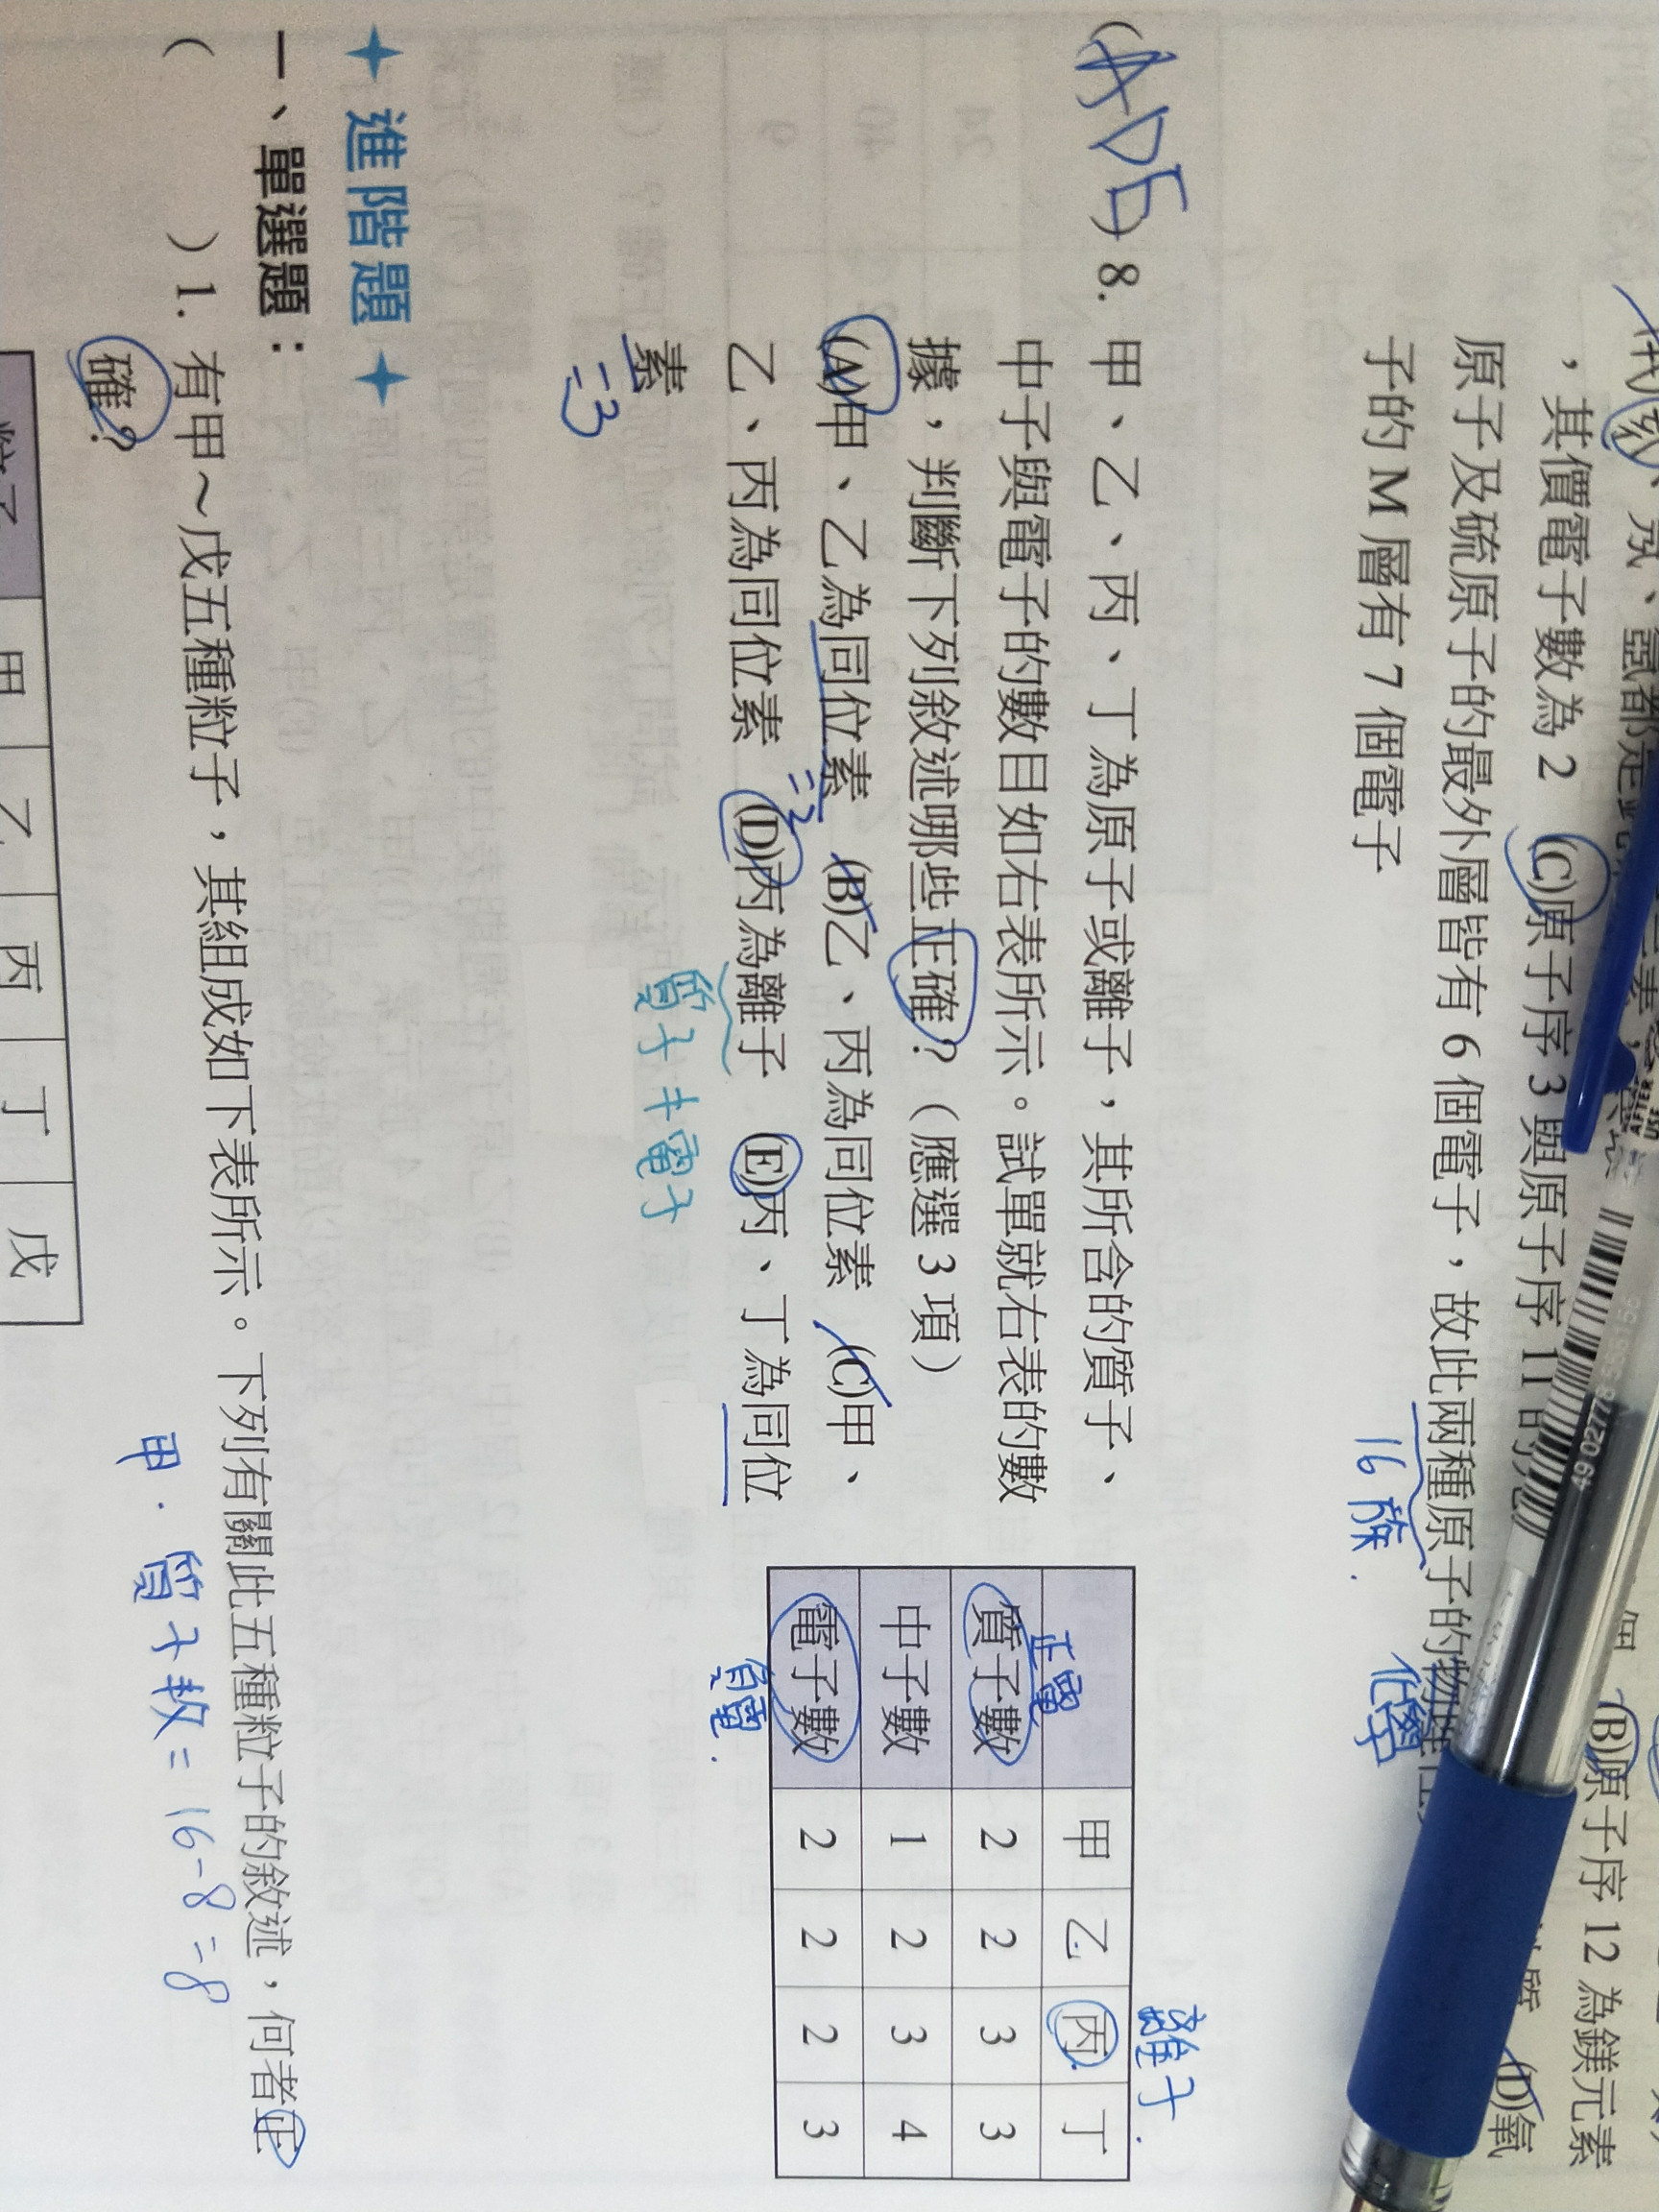 氖、氬都是
，其價電子數為 2 (C)原子序 3 與原子序 11 的
(B)原子序 12 為鎂元素
原子及硫原子的最外層皆有 6 個電子，故此兩種原子的物理性
(D)氧
子的 M 層有 7 個電子
16 族.
化學
(ADE) 8. 甲、乙、丙、丁為原子或離子，其所含的質子、
中子與電子的數目如右表所示。試單就右表的數
據，判斷下列敘述哪些正確？（應選 3 項）
(A)甲、乙為同位素 (B)乙、丙為同位素 (C)甲、
=2
乙、丙為同位素 (D)丙為離子 (E)丙、丁為同位
素
=3
質子≠電子
離子.
甲 乙 丙 丁
正電
質子數 2 2 3 3
中子數 1 2 3 4
電子數 2 2 2 3
負電.
進階題
一、單選題：
( ) 1. 有甲～戊五種粒子，其組成如下表所示。下列有關此五種粒子的敘述，何者正
確？
甲. 質子數 = 16-8 = 8
粒子 甲 乙 丙 丁 戊
49 02778
AFTER